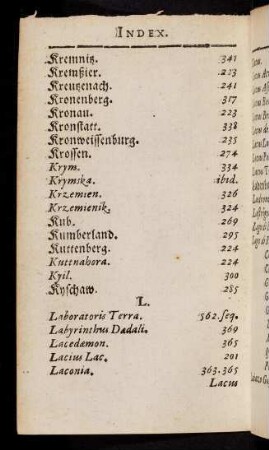 INDEX.
Kremnitz. 341
Kremßier. 223
Kreutzenach. 241
Kronenberg. 317
Kronau. 223
Kronstatt. 338
Kronweissenburg. 235
Krossen. 274
Krym. 334
Krymska. ibid.
Krzemien. 326
Krzemienik. 324
Kub. 269
Kumberland. 295
Kuttenberg. 224
Kuttnahora. 224
Kyil. 300
Kyschaw. 285
L.
Laboratoris Terra. 362.seq.
Labyrinthus Dædali. 369
Lacedæmon. 365
Lacius Lac. 201
Laconia. 363.365
Lacus